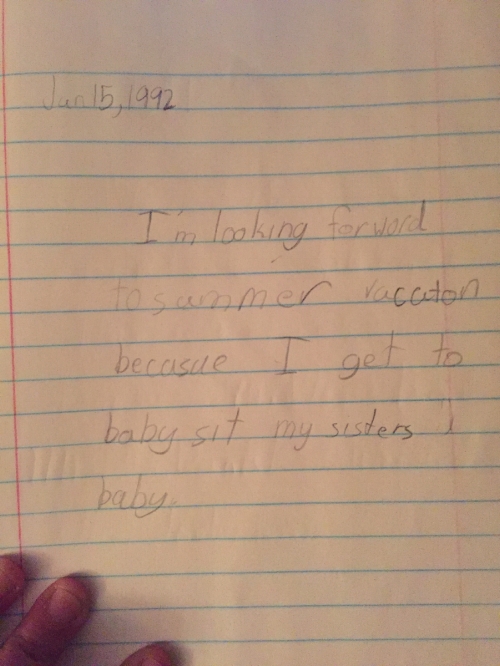 Jun 15, 1992
I'm looking forword
to summer vaccaton
becasue I get to
baby sit my sisters
baby.